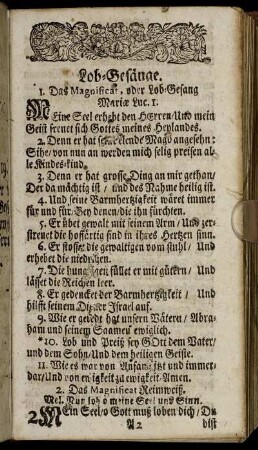 Lob-Gesänge.
1. Das Magnificat, oder Lob-Gesang
Mariæ Luc. 1.
MEine Seel erhebt den HErren/Und mein
Geist freuet sich Gottes meines Heylandes.
2. Denn er hat seine elende Magd angesehn:
Sihe/von nun an werden mich selig preisen al-
le Kindes-kind.
3. Denn er hat grosse Ding an mir gethan/
Der da mächtig ist / und des Nahme heilig ist.
4. Und seine Barmhertzigkeit wäret immer
für und für: Bey denen/die ihn fürchten.
5. Er übet gewalt mit seinem Arm/ Und zer-
streuet die hoffärtig sind in ihres Hertzen sinn.
6. Er stosset die gewaltigen vom stuhl/ Und
erhebet die niedrigen.
7. Die hungrigen füllet er mit gütern/ Und
lässet die Reichen leer.
8. Er gedencket der Barmhertzigkeit / Und
hilfft seinem Diener Israel auf.
9. Wie er geredt hat unsern Vätern/ Abra-
ham und seinem Saamen ewiglich.
*10. Lob und Preiß sey GOtt dem Vater/
und dem Sohn/Und dem heiligen Geiste.
11. Wie es war von Anfang jetzt und immer-
dar/Und von ewigkeit zu ewigkeit-Amen.
2. Das Magnificat Reimweiß.
Mel. Nun lob o meine Seel und Sinn.
2. MEin Seel/o Gott muß loben dich/ Du
A2 bist